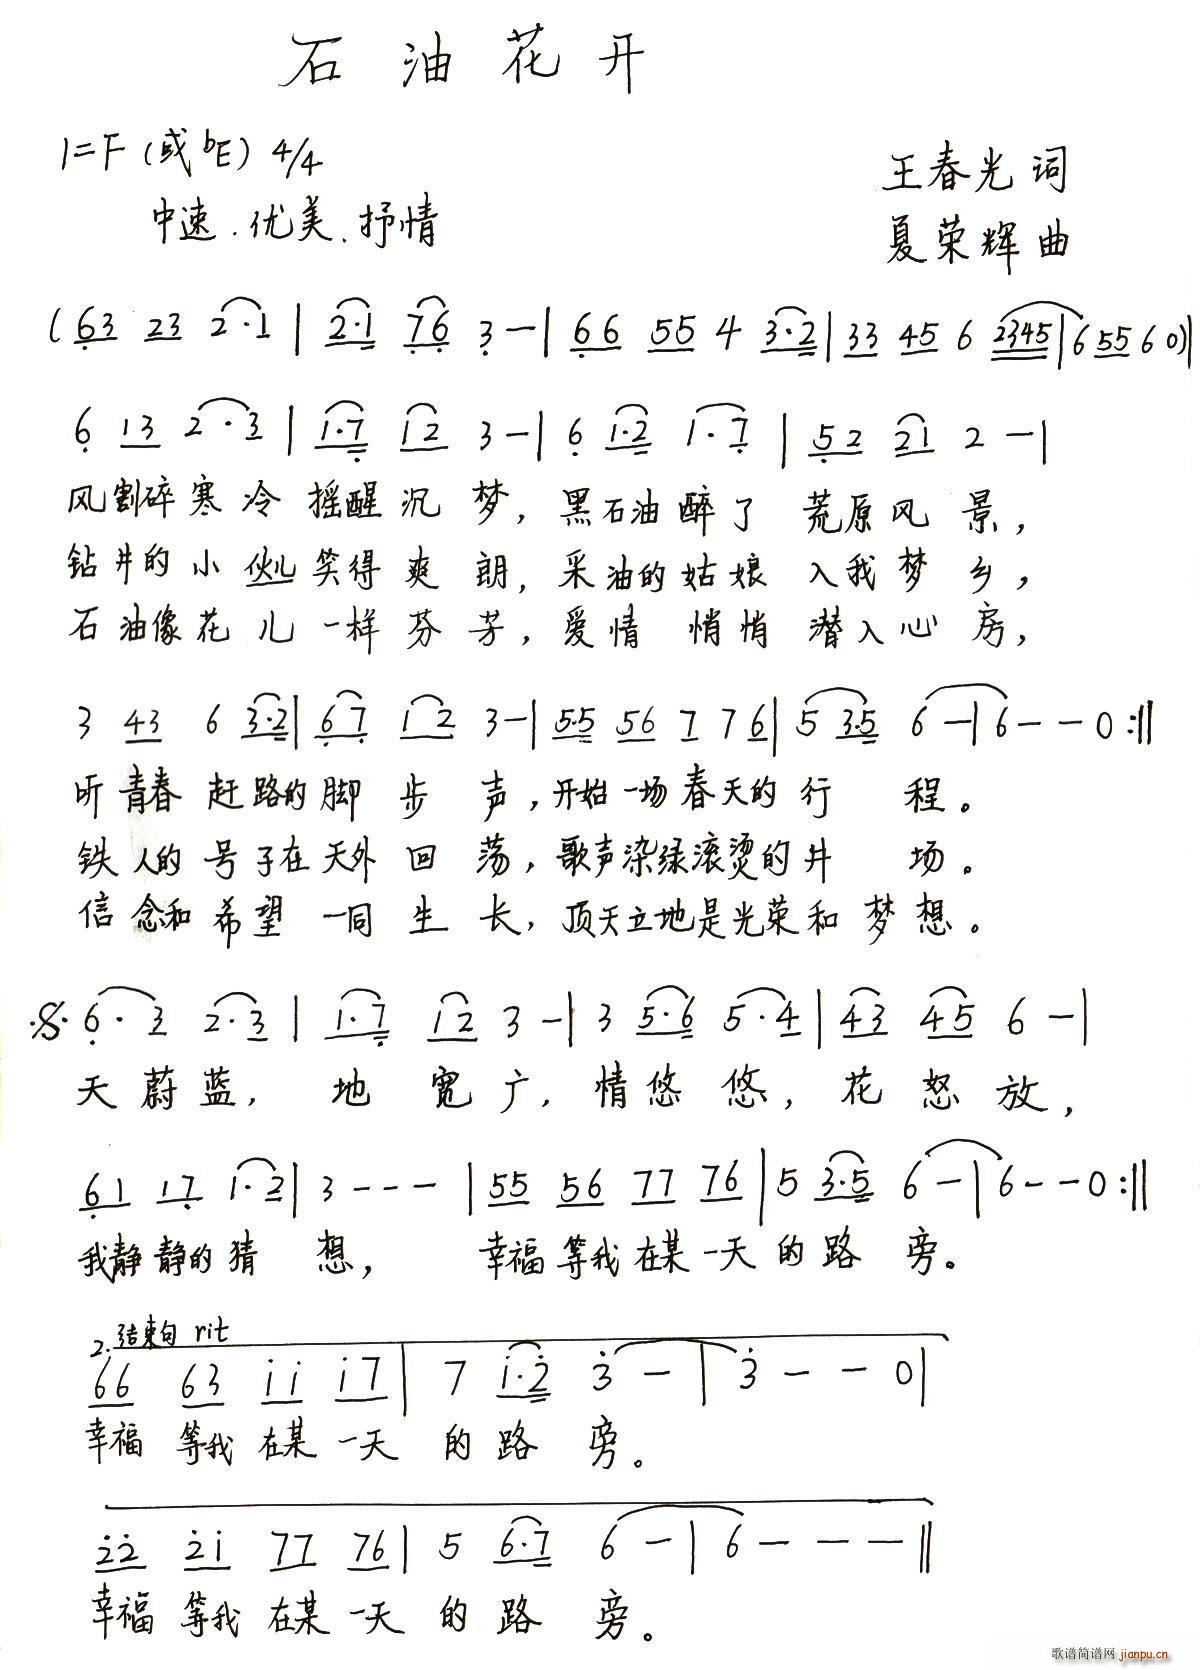 石油花开
1=F(或bE) 4/4
王春光 词
中速.优美、抒情
夏荣辉 曲
(63 23 2·1 | 2·1 76 3 — | 66 55 4 3·2 | 33 45 6 2345 | 6 55 6 0) |
6 13 2·3 | 1·7 12 3 — | 6 1·2 1·7 | 52 21 2 — |
风割碎寒冷摇醒沉梦,黑石油醉了荒原风景,
钻井的小伙儿笑得爽朗,采油的姑娘入我梦乡,
石油像花儿一样芬芳,爱情悄悄潜入心房,
3 43 6 3·2 | 67 12 3 — | 5·5 56 7 7 6 | 5 3·5 6 — | 6 — — 0 :||
听青春赶路的脚步声,开始一场春天的行程。
铁人的号子在天外回荡,歌声染绿滚烫的井场。
信念和希望一同生长,顶天立地是光荣和梦想。
6·3 2·3 | 1·7 12 3 — | 3 5·6 5·4 | 43 45 6 — |
天蔚蓝,地宽广,情悠悠,花怒放,
61 17 1·2 | 3 - - - | 55 56 77 76 | 5 3·5 6 — | 6 — — 0 :||
我静静的猜想,幸福等我在某一天的路旁。
2.结束句 rit
66 63 11 17 | 7 1·2 3 — | 3 — — 0 |
幸福等我在某一天的路旁。
22 21 77 76 | 5 6·7 6 — | 6 — — — ||
幸福等我在某一天的路旁。
歌谱简谱网
jianpu.cn